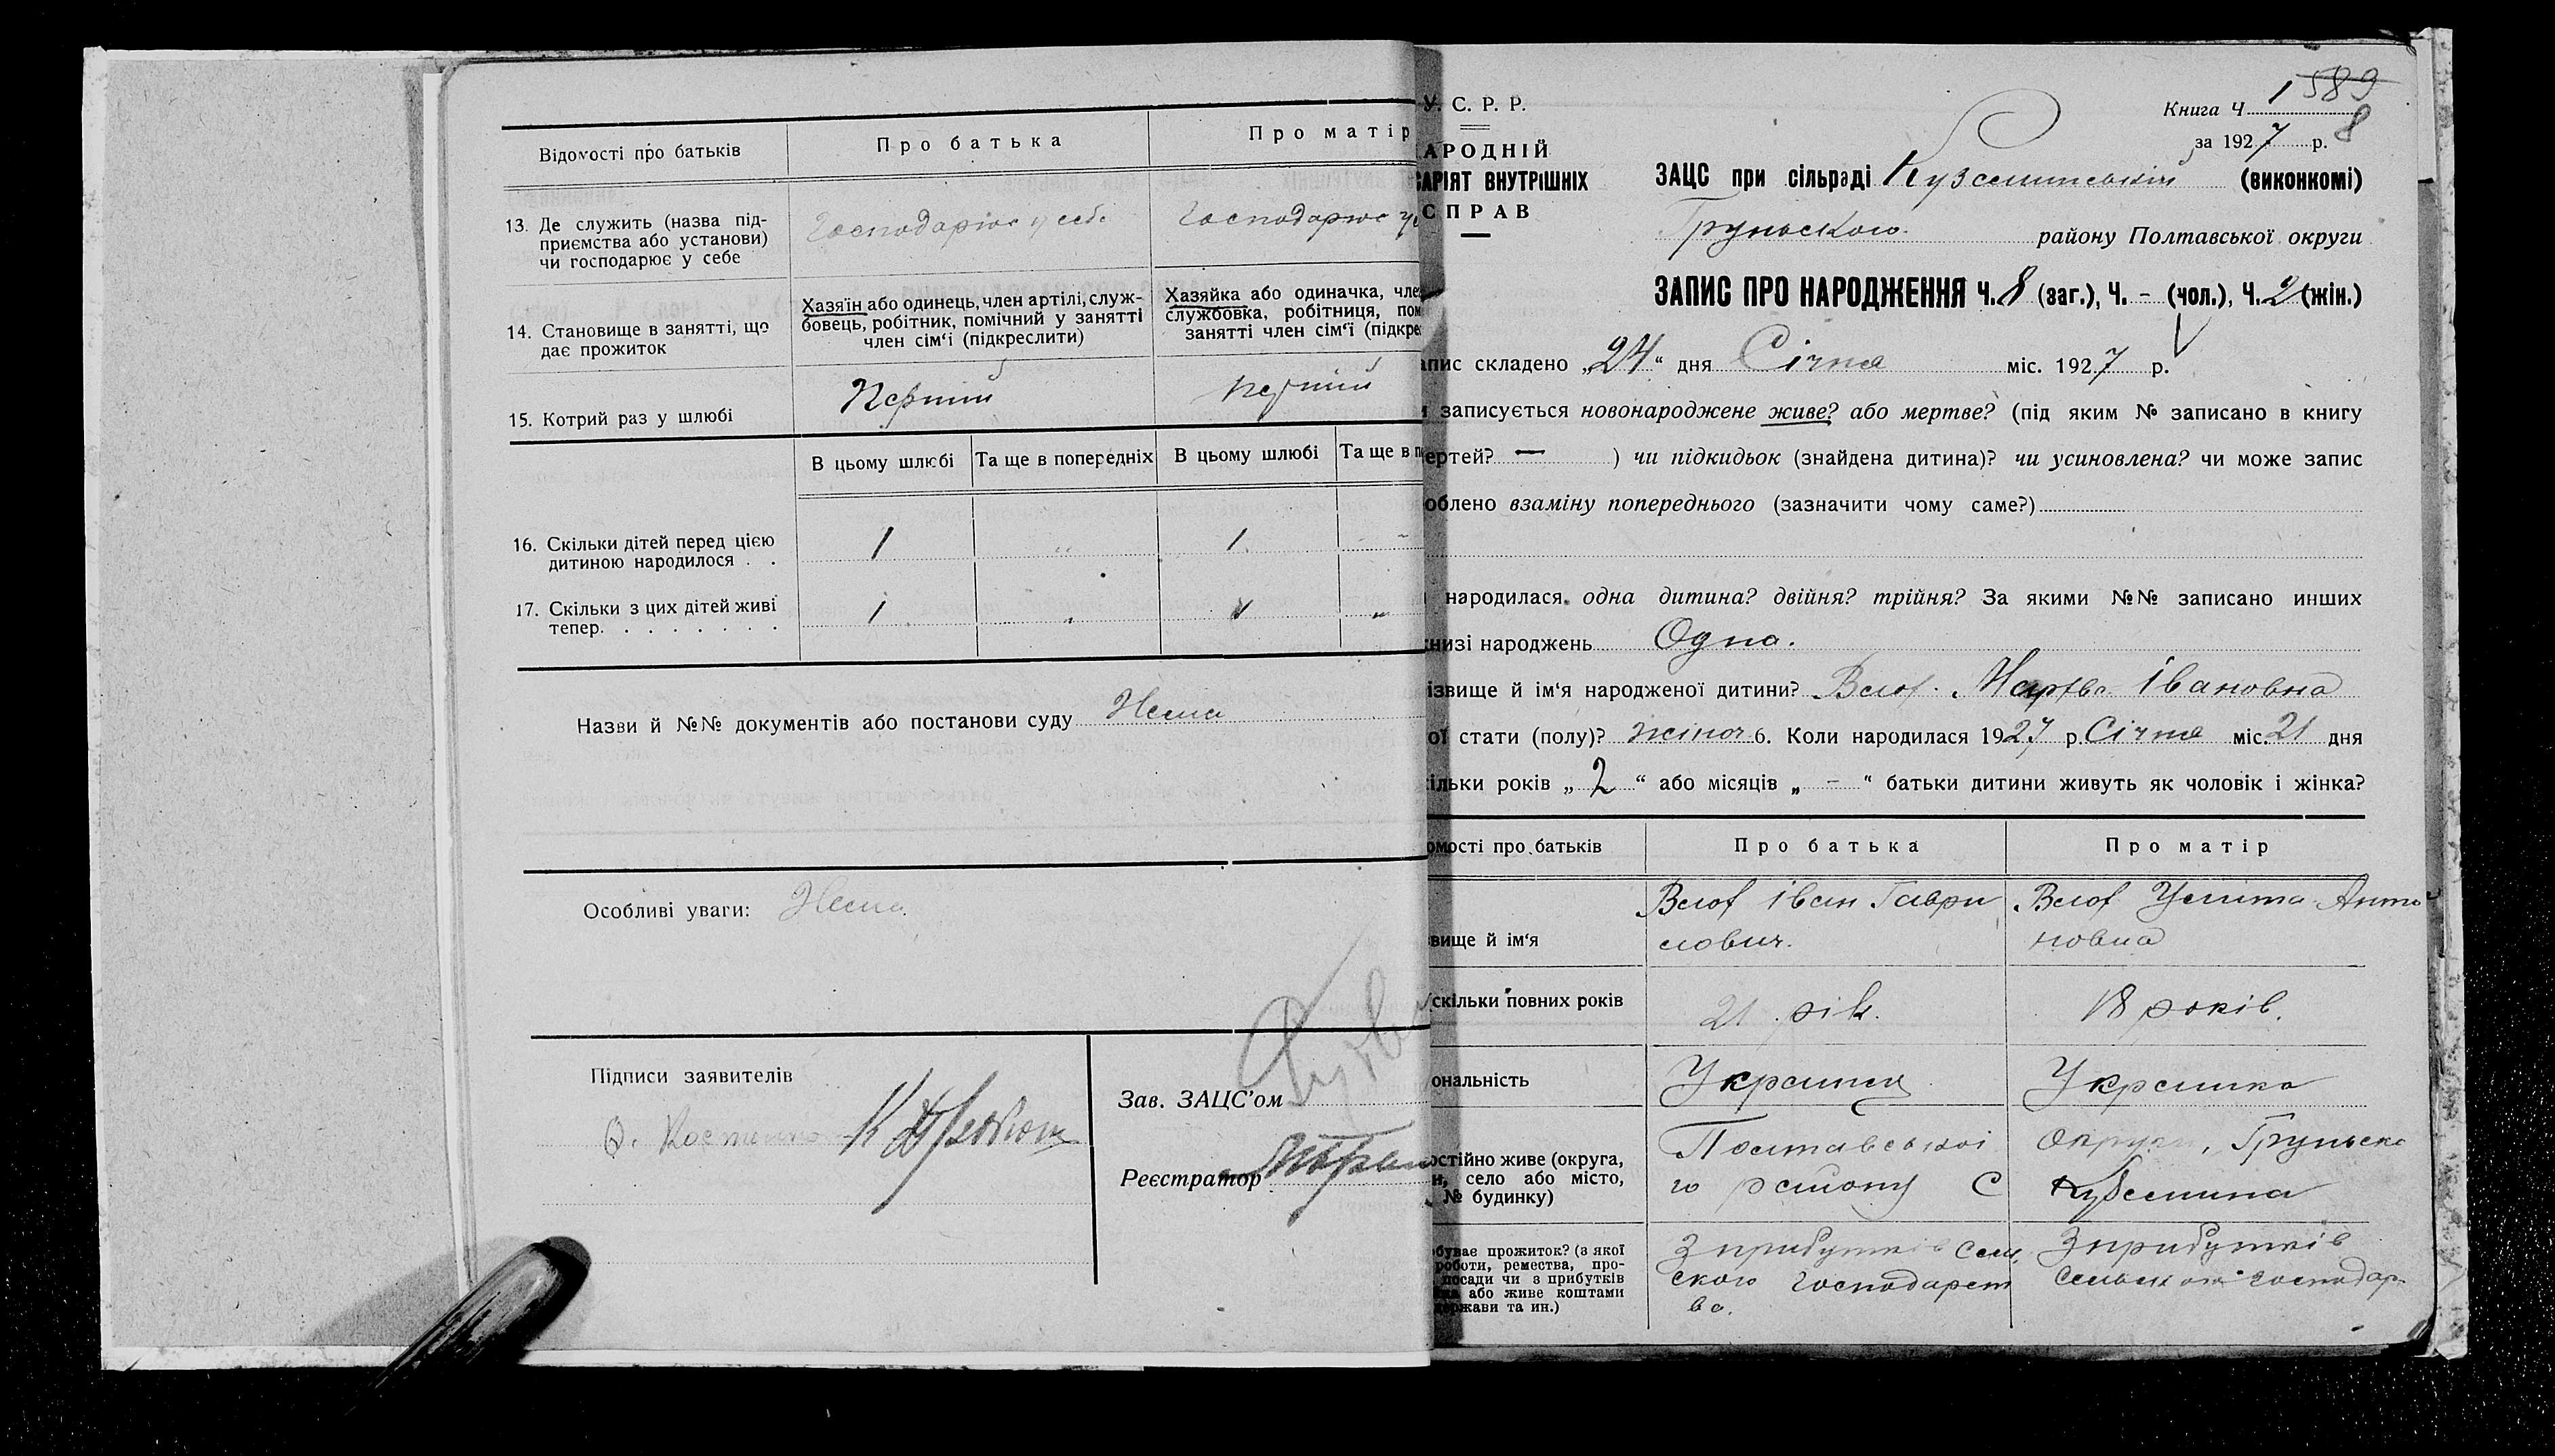 Відомості про батьків
Про батька
Про матір
13. Де служить (назва під-
приємства або установи)
чи господарює у себе
Господарює у себе
Господарює у
14. Становище в занятті, що
дає прожиток
Хазяїн або одинець, член артілі, служ-
бовець, робітник, помічний у занятті
член сім‘ї (підкреслити)
Хазяйка або одиначка, чле
службовка, робітниця, пом
занятті член сім‘ї (підкре
15. Котрий раз у шлюбі
Перший
перший
В цьому шлюбі
Та ще в попередніх
В цьому шлюбі
Та ще в п
16. Скільки дітей перед цією
дитиною народилося . .
1
"
1
-
17. Скільки з цих дітей живі
тепер. . . . . . . .
1
"
1
"
Назви й №№ документів або постанови суду Нема
Особливі уваги: Нема.
Підписи заявителів
Зав. ЗАЦС’ом
Реєстратор
У. С. Р. Р.
АРОДНІЙ
САРІЯТ ВНУТРІШНІХ
СПРАВ
589
Книга Ч 1
8
за 1927 р.
ЗАЦС при сільраді (виконкомі)
Груньского району Полтавської округи
ЗАПИС ПРО НАРОДЖЕННЯ Ч. 8 (заг.), Ч. - (чол.), Ч. 2 (жін.)
апис складено „24“ дня Січня міс. 1927 р.
и записується новонароджене живе? або мертве? (під яким № записано в книгу
ертей? — ) чи підкидьок (знайдена дитина)? чи усиновлена? чи може запис
облено взаміну попереднього (зазначити чому саме?)
народилася одна дитина? двійня? трійня? За якими №№ записано инших
книзі народжень Одна.
ізвище й ім‘я народженої дитини? Марфа Івановна
ої стати (полу)? жіноч. 6. Коли народилася 1927 р. Січня міс. 21 дня
ільки років „ 2 “ або місяців „ - “ батьки дитини живуть як чоловік і жінка?
омості про батьків
Про батька
Про матір
звище й ім‘я
Іван Гаври
лович.
Анто
новна
скільки повних років
21 рік.
18 років.
ональність
Українец
Українка
остійно живе (округа,
н, село або місто,
№ будинку)
Полтавської Округи, Груньско
го району С
бував прожиток? (з якої
роботи, ремества, про-
посади чи з прибутків
на або живе коштами
держави та ин.)
З прибутків сель
ского господарст
ва.
З прибутків
сельского господар